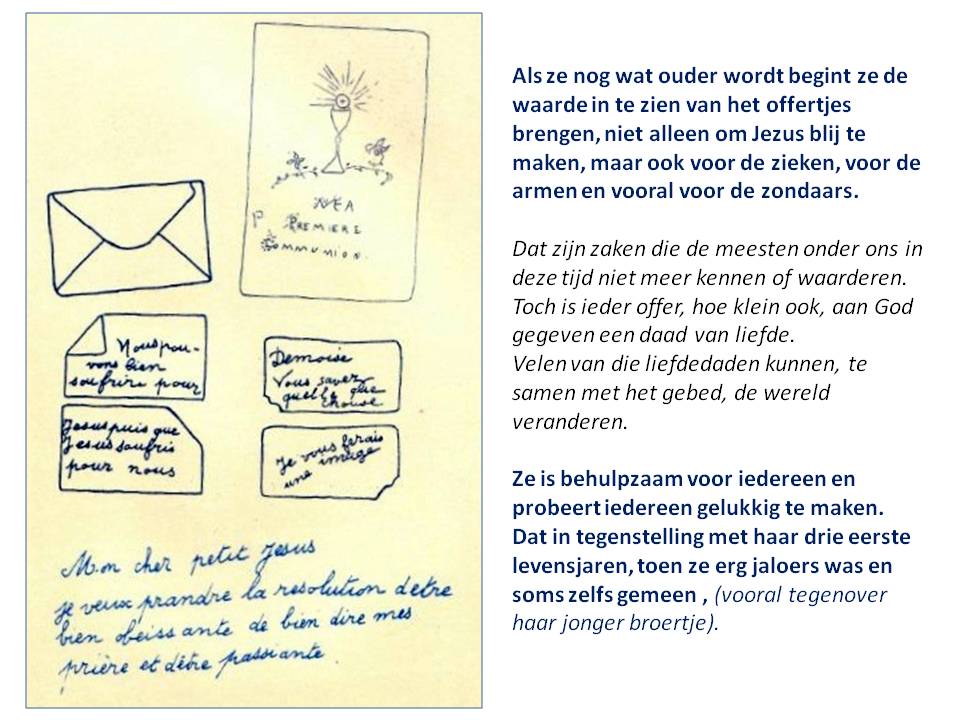 MA
PREMIERE
COMMUNION.
Nous pou-
vons bien
soufrire pour
Jesus puis que
Jesus soufris
pour nous
Demoise
Vous savez
quelle que
chouse
Je vous ferais
une image
Mon cher petit Jesus
je veux prandre la resolution d'etre
bien obeissante de bien dire mes
prière et d'être passiante.
Als ze nog wat ouder wordt begint ze de
waarde in te zien van het offertjes
brengen, niet alleen om Jezus blij te
maken, maar ook voor de zieken, voor de
armen en vooral voor de zondaars.
Dat zijn zaken die de meesten onder ons in
deze tijd niet meer kennen of waarderen.
Toch is ieder offer, hoe klein ook, aan God
gegeven een daad van liefde.
Velen van die liefdedaden kunnen, te
samen met het gebed, de wereld
veranderen.
Ze is behulpzaam voor iedereen en
probeert iedereen gelukkig te maken.
Dat in tegenstelling met haar drie eerste
levensjaren, toen ze erg jaloers was en
soms zelfs gemeen , (vooral tegenover
haar jonger broertje).